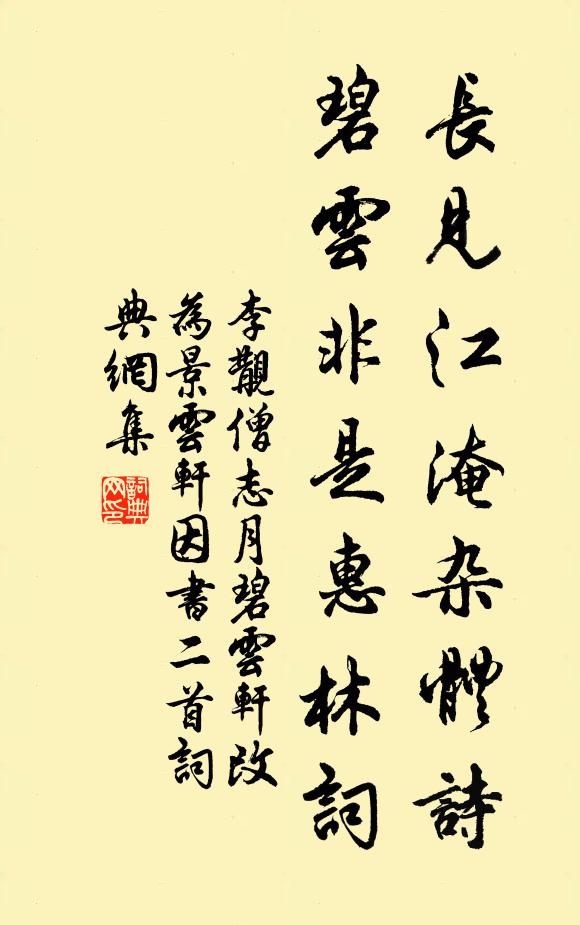 長見江淹杂體詩
碧雲非是惠林詞
李觀僧志月碧雲軒改
為景雲軒因書二首詞
典網集
詞典
网印